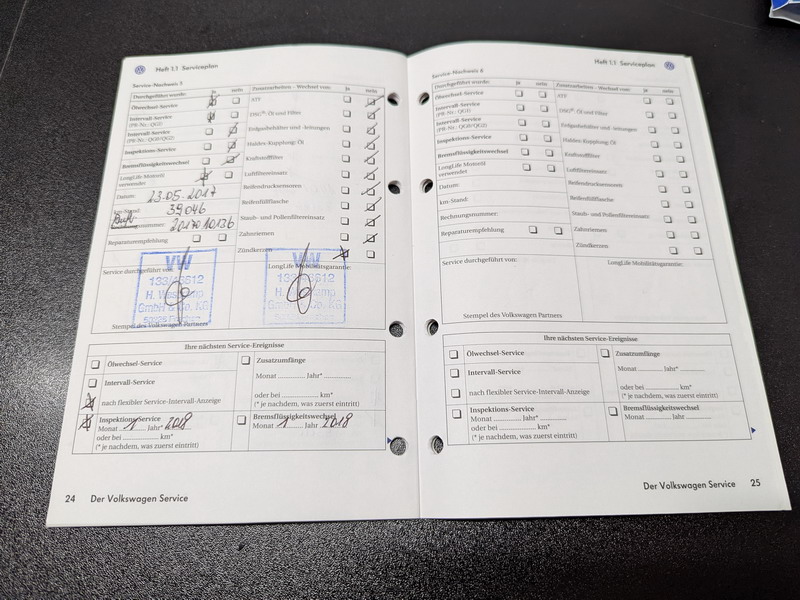 Heft 1.1 Serviceplan
Service-Nachweis 5
Durchgeführt wurde: ja nein
Ölwechsel-Service
Intervall-Service
(PR-Nr.: QG1)
Intervall-Service
(PR-Nr.: QG0/QG2)
Inspektions-Service
Bremsflüssigkeitswechsel
LongLife Motoröl
verwendet
Datum: 23.05.2017
km-Stand: 39046
nummer: 2017010136
Reparaturempfehlung
Zusatzarbeiten - Wechsel von: ja nein
ATF
DSG®-Öl und Filter
Erdgasbehälter und -leitungen
Haldex-Kupplung: Öl
Kraftstofffilter
Luftfiltereinsatz
Reifendrucksensoren
Reifenfüllflasche
Staub- und Pollenfiltereinsatz
Zahnriemen
Zündkerzen
Service durchgeführt von:
LongLife Mobilitätsgarantie:
VW
GmbH & Co. KG
VW
GmbH & Co. KG
Stempel des Volkswagen Partners
Ihre nächsten Service-Ereignisse
Ölwechsel-Service
Intervall-Service
nach flexibler Service-Intervall-Anzeige
Zusatzumfänge
Monat ............ Jahr* ............
oder bei ............ km*
(* je nachdem, was zuerst eintritt)
Inspektions-Service
Monat 1 Jahr* 2018
oder bei ............ km*
(* je nachdem, was zuerst eintritt)
Bremsflüssigkeitswechsel
Monat 1 Jahr 2018
24 Der Volkswagen Service
Heft 1.1 Serviceplan
Service-Nachweis 6
Durchgeführt wurde: ja nein
Ölwechsel-Service
Intervall-Service
(PR-Nr.: QG1)
Intervall-Service
(PR-Nr.: QG0/QG2)
Inspektions-Service
Bremsflüssigkeitswechsel
LongLife Motoröl
verwendet
Datum:
km-Stand:
Rechnungsnummer:
Reparaturempfehlung
Zusatzarbeiten - Wechsel von: ja nein
ATF
DSG®-Öl und Filter
Erdgasbehälter und -leitungen
Haldex-Kupplung: Öl
Kraftstofffilter
Luftfiltereinsatz
Reifendrucksensoren
Reifenfüllflasche
Staub- und Pollenfiltereinsatz
Zahnriemen
Zündkerzen
Service durchgeführt von:
LongLife Mobilitätsgarantie:
Stempel des Volkswagen Partners
Ihre nächsten Service-Ereignisse
Ölwechsel-Service
Intervall-Service
nach flexibler Service-Intervall-Anzeige
Zusatzumfänge
Monat ............ Jahr* ............
oder bei ............ km*
(* je nachdem, was zuerst eintritt)
Inspektions-Service
Monat ............ Jahr* ............
oder bei ............ km*
(* je nachdem, was zuerst eintritt)
Bremsflüssigkeitswechsel
Monat ............ Jahr ............
Der Volkswagen Service 25